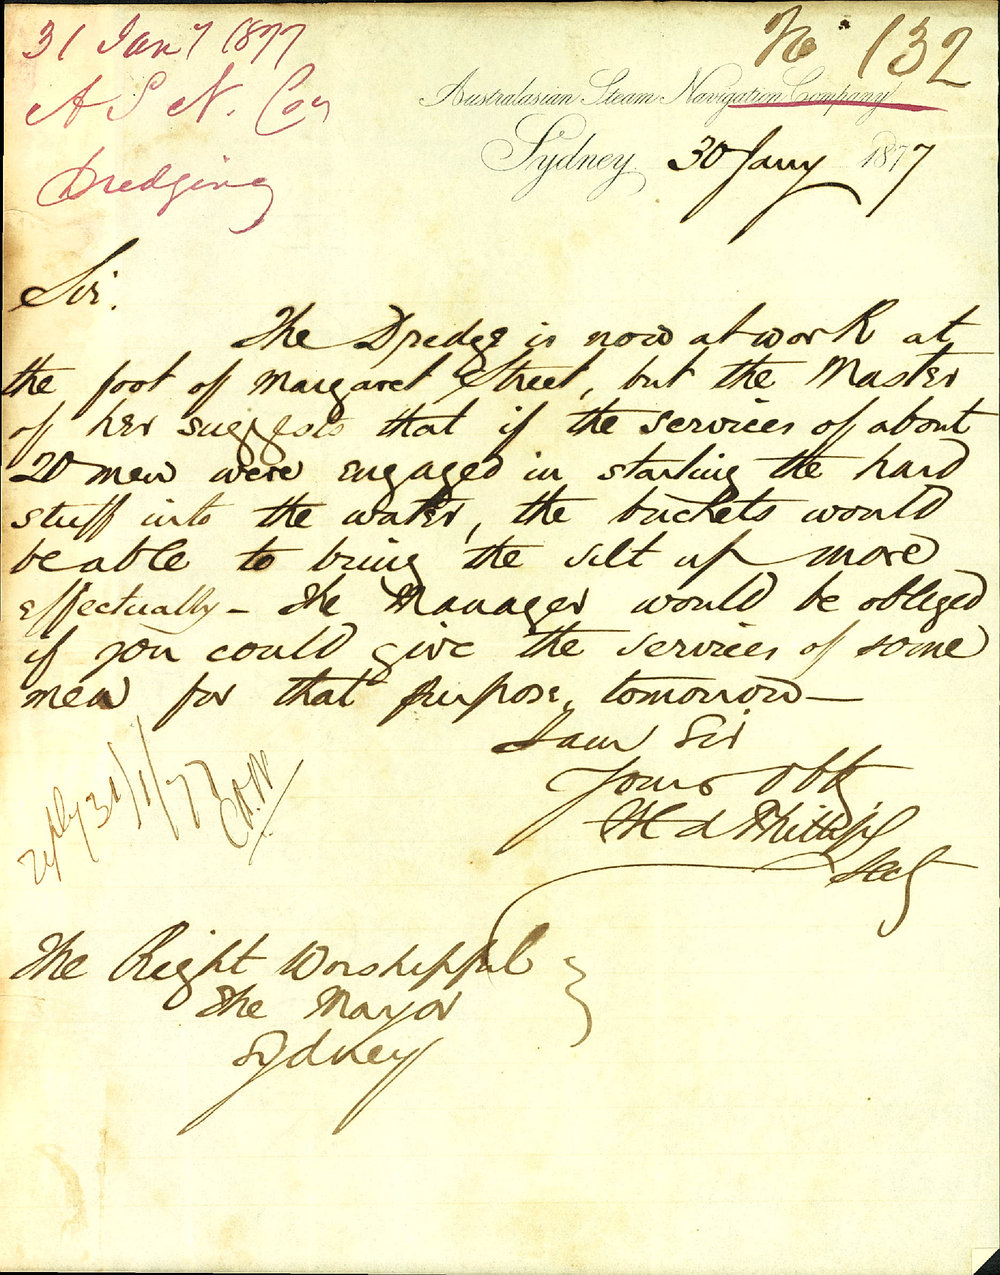 31 Jany 1877
A S N. Coy
Dredging
No 132
Australasian Steam Navigation Company
Sydney 30 Jany 1877
Sir.
The Dredge is now at work at
the foot of Margaret Street, but the Master
of her suggests that if the services of about
20 men were engaged in starting the hard
stuff into the water, the buckets would
be able to bring the silt up more
effectually - The Manager would be obliged
if you could give the services of some
men for that purpose, tomorrow -
I am Sir
Yours Obty
Phillips
Secy
reply 31/1/77
The Right Worshipful
The Mayor
Sydney